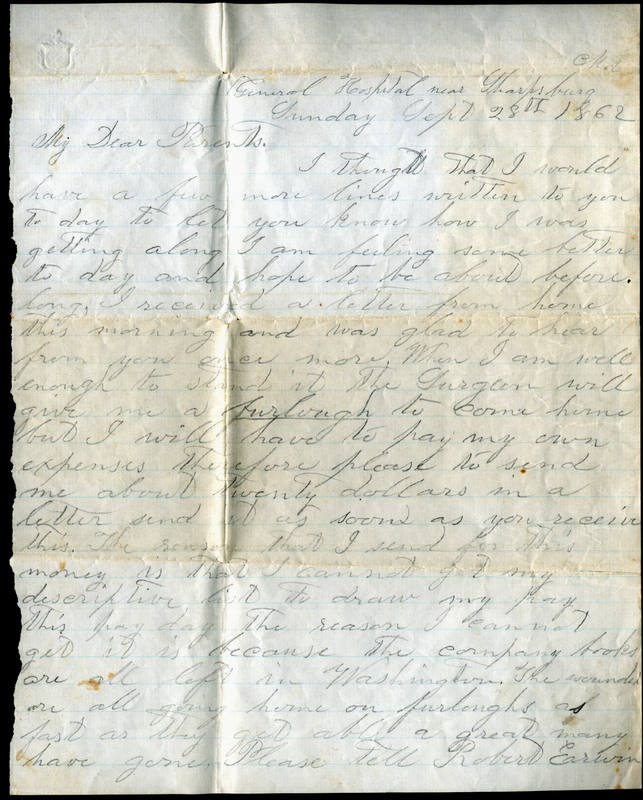 Md.
General Hospital near Sharpsburg
Sunday Sept 28th 1862
My Dear Parents.
I thought that I would
have a few more lines written to you
to day to let you know how I was
getting along I am feeling some better
to day and hope to be about before
long. I received a letter from home
this morning and was glad to hear
from you once more. When I am well
enough to stand it the Surgeon will
give me a furlough to come home
but I will have to pay my own
expenses therefore please to send
me about twenty dollars in a
letter send it as soon as you receive
this. The reason that I send for this
money is that I cannot get my
descriptive list to draw my pay
this pay day the reason I cannot
get it is because the company books
are all left in Washington. The wounded
are all going home on furloughs as
fast as they get able a great many
have gone. Please tell Robert Earwin